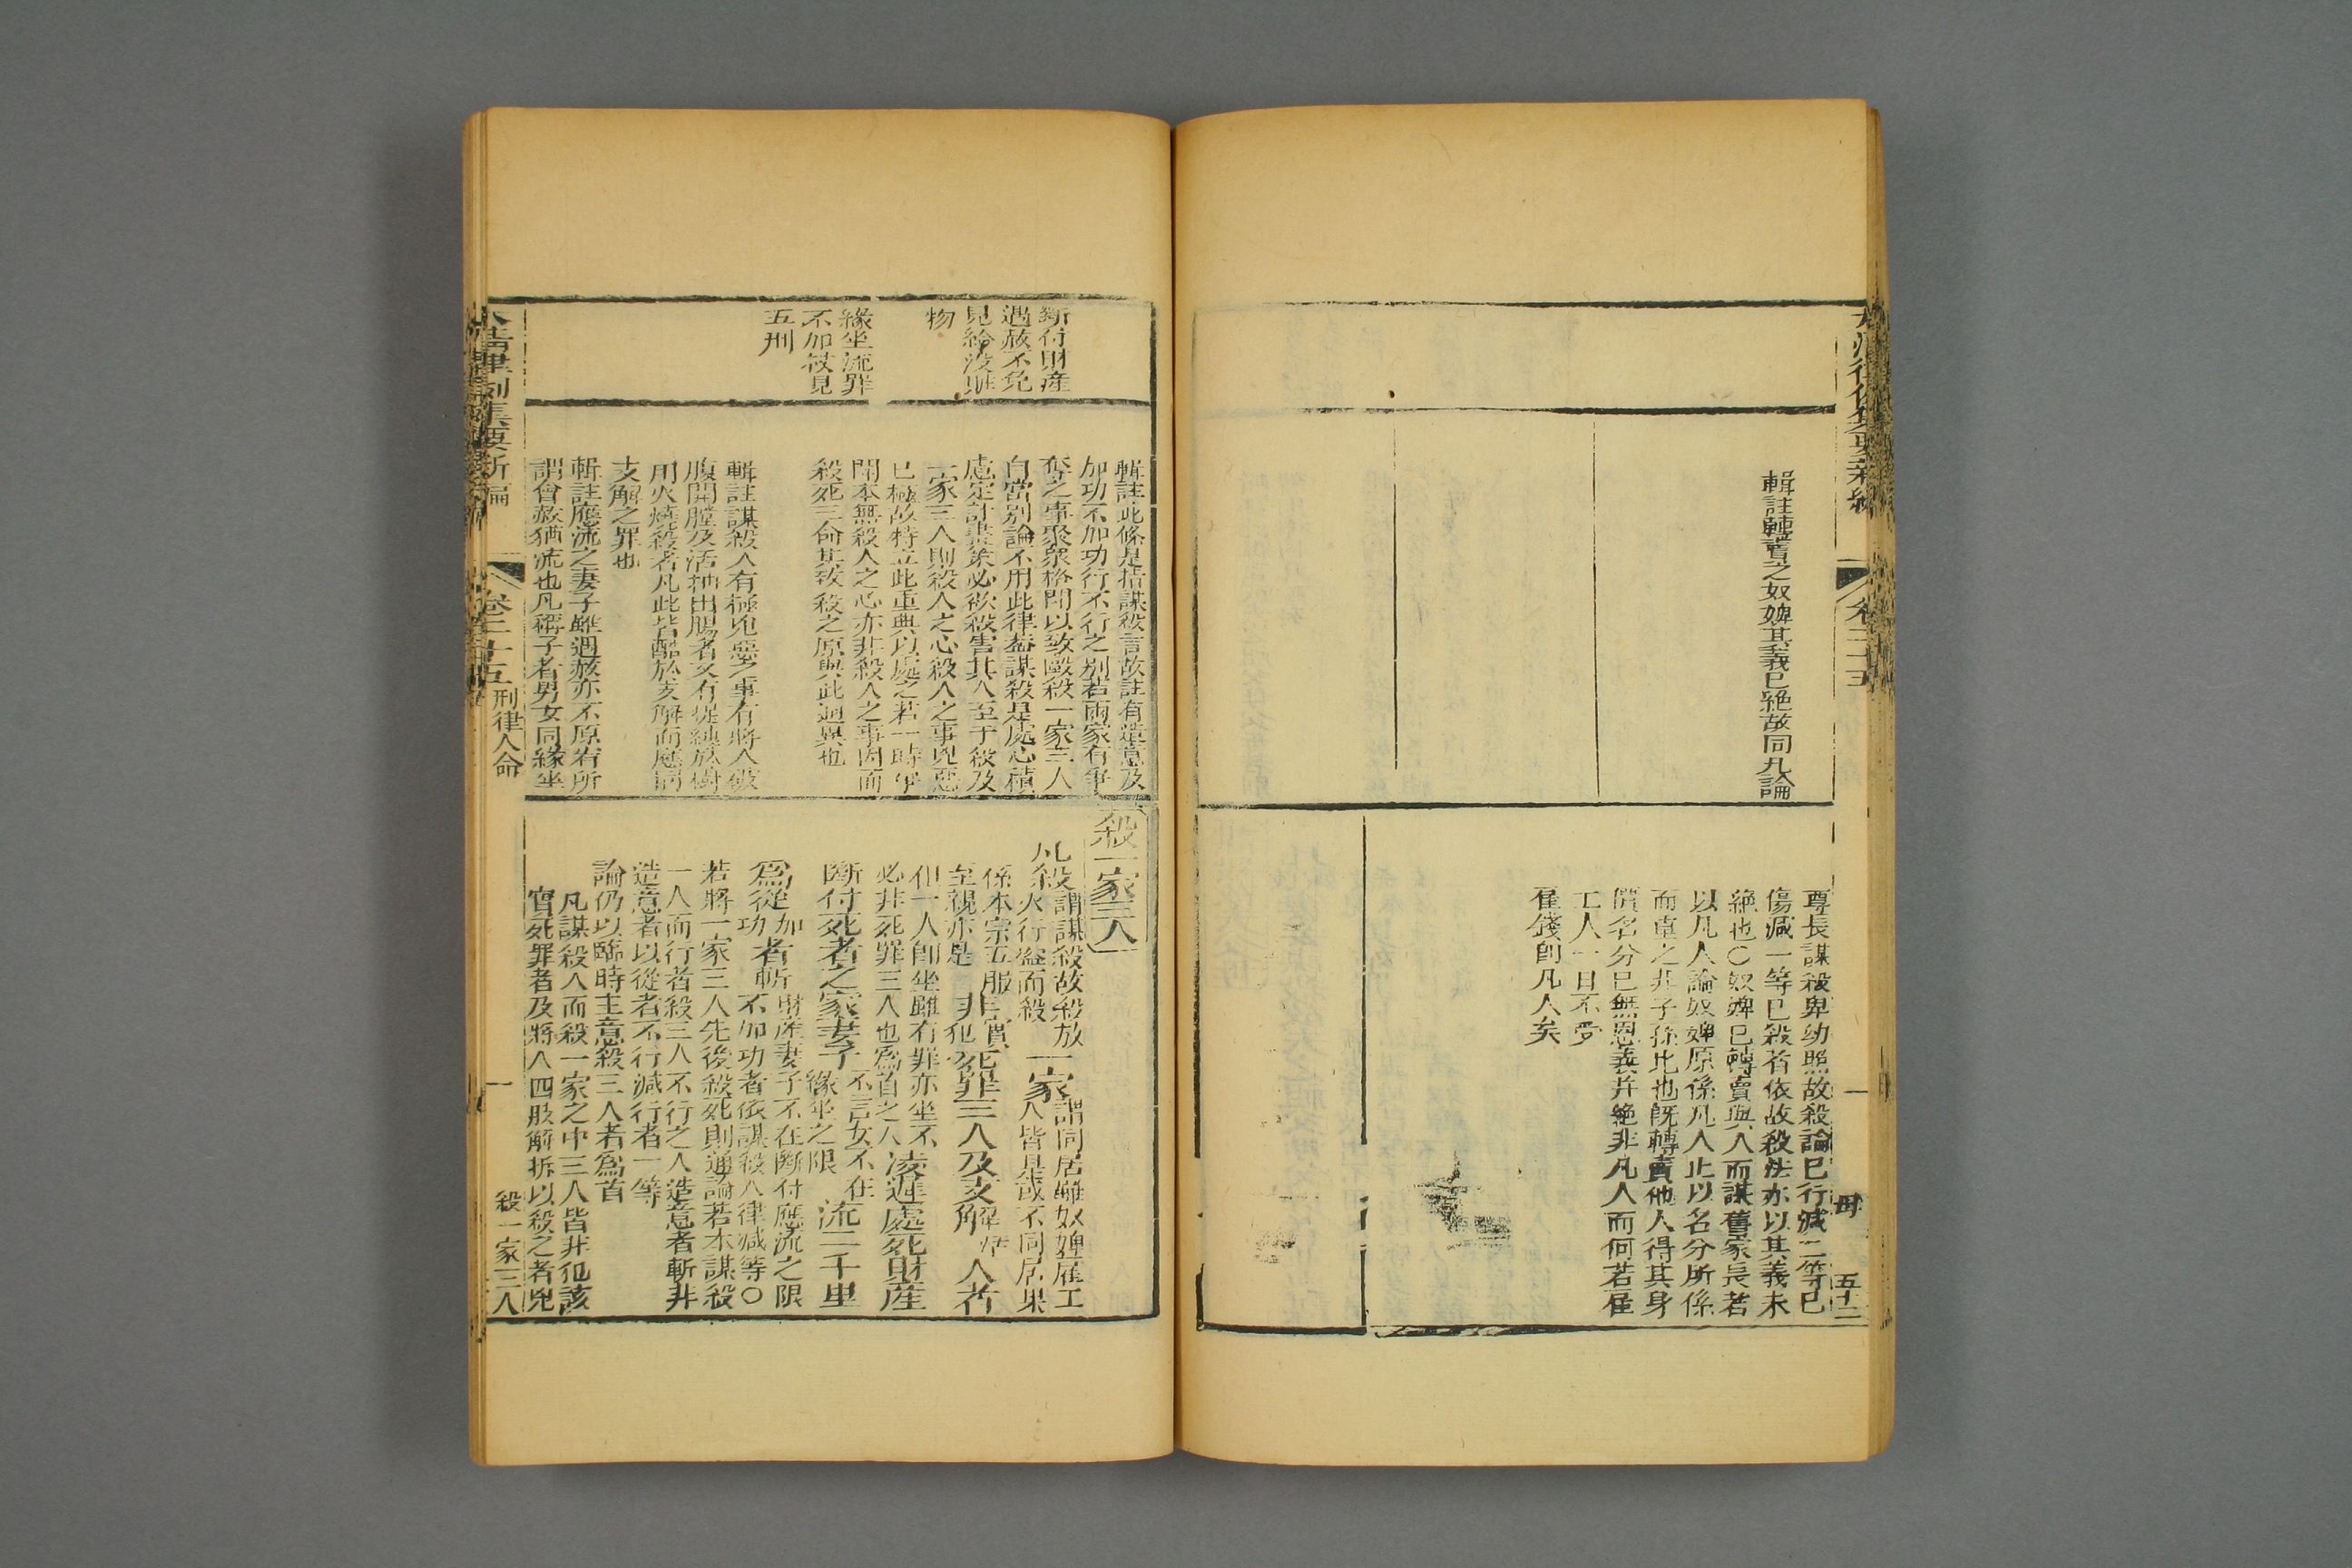 輯註轉賣之奴婢其義已絕故同凡論
尊長謀殺卑幼照故殺論已行減二等已
傷減一等已殺者依故殺法亦以其義未
絕也○奴婢已轉賣與人而謀舊家長若
以凡人論奴婢原係凡人止以名分所係
而卑之非子孫比也旣轉賣他人得其身
價名分已無恩義并絕非凡人而何若雇
工人一日不受
雇錢卽凡人矣
卷二十五
五十二
斷付財產
遇赦不免
見給沒贓
物
緣坐流罪
不加杖見
五刑
輯註此條是指謀殺言故註有造意及
加功不加功行不行之別若兩家有爭
奪之事聚衆格鬥以致毆殺一家三人
自當別論不用此律葢謀殺是處心積
慮定計畫策必欲殺害其人至于殺及
一家三人則殺人之心殺人之事兇惡
已極故特立此重典以處之若一時爭
鬥本無殺人之心亦非殺人之事因而
殺死三命其致殺之原與此迥異也
輯註謀殺人有極兇惡之事有將人破
腹開膛及活抽出腸者又有
用火燒殺者凡此皆酷於支解而應同
支解之罪也
輯註應流之妻子雖遇赦亦不原宥所
謂會赦猶流也凡稱子者男女同緣坐
殺一家三人
凡殺謂謀殺故殺放火行盜而殺一家謂同居雖奴婢雇工人皆是或不同居果
係本宗五服至親亦是非實犯死罪三人及支解活人者
但一人卽坐雖有罪亦坐不必非死罪三人也爲首之人凌遲處死財產
斷付死者之家妻子不言女不在緣坐之限流二千里
爲從加功者斬財產妻子不在斷付應流之限不加功者依謀殺人律減等○
若將一家三人先後殺死則通論若本謀殺
一人而行者殺三人不行之人造意者斬非
造意者以從者不行減行者一等
論仍以臨時主意殺三人者爲首
凡謀殺人而殺一家之中三人皆非犯該
實死罪者及將人四肢解拆以殺之者兇
大清律例集要新編
卷二十五
刑律人命
一
殺一家三人